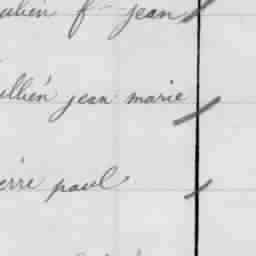 ulien f^s jean
llien jean marie
erre paul